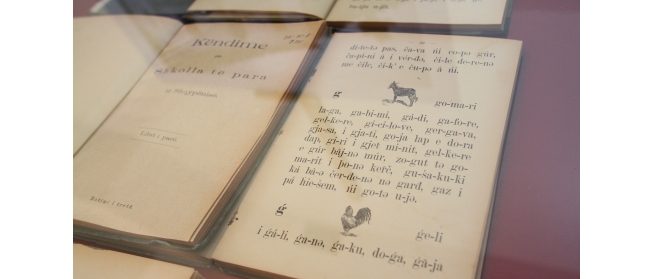 Këndime
Shkolla të para
të Shqypënisë
Libri i parë
di-te-tə pas, ča-va ńi co-pə gúr,
ča-pi-ni á i vér-də, či-le de-re-nə
me čilč, čik' e ču-pə á ńi.
g go-ma-ri
la-ga, ga-bi-mi, gá-di, ga-fo-re,
gel-ke-re, gi-ci-lo-ve, ger-ga-va,
gja-sa, i gja-ti, go-ja lap e do-ra
dap, gi-ri i gjet mi-nit, gel-ke-re
e gúr bâj-nə mur, zo-gut tə go-
ma-rit i þo-nə kerč, gu-ša-ku-ki
ká bá-ə čer-de-nə nə gard, gaz i
pá hie-šem, ńi go-tə u-jə.
g ge-li
i gá-li, ga-nə, ga-ku, do-ga, gá-ja